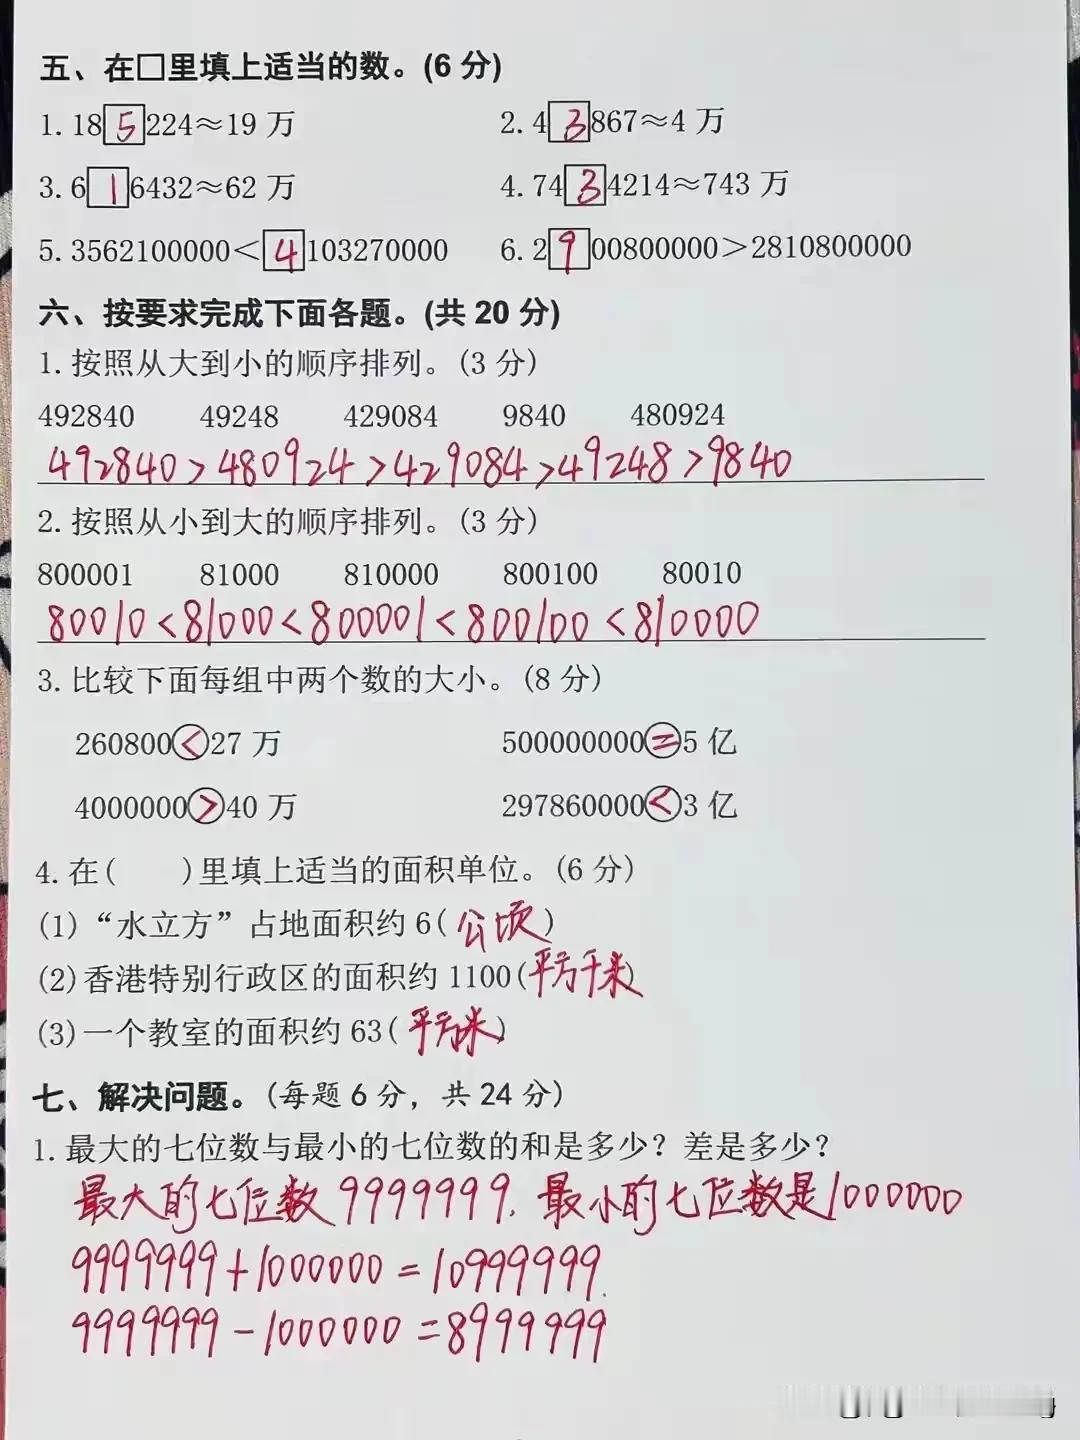 五、在□里填上适当的数。(6 分)
1. 18 5 224≈19 万 2. 4 3 867≈4 万
3. 6 1 6432≈62 万 4. 74 3 4214≈743 万
5. 3562100000< 4 103270000 6. 2 9 00800000>2810800000
六、按要求完成下面各题。(共 20 分)
1. 按照从大到小的顺序排列。(3 分)
492840 49248 429084 9840 480924
492840>480924>429084>49248>9840
2. 按照从小到大的顺序排列。(3 分)
800001 81000 810000 800100 80010
80010<81000<800001<800100<810000
3. 比较下面每组中两个数的大小。(8 分)
260800<27 万 500000000=5 亿
4000000>40 万 297860000<3 亿
4. 在( )里填上适当的面积单位。(6 分)
(1)“水立方”占地面积约 6(公顷)
(2)香港特别行政区的面积约 1100(平方千米)
(3)一个教室的面积约 63(平方米)
七、解决问题。(每题 6 分，共 24 分)
1. 最大的七位数与最小的七位数的和是多少？差是多少？
最大的七位数9999999. 最小的七位数是1000000
9999999+1000000=10999999.
9999999-1000000=8999999